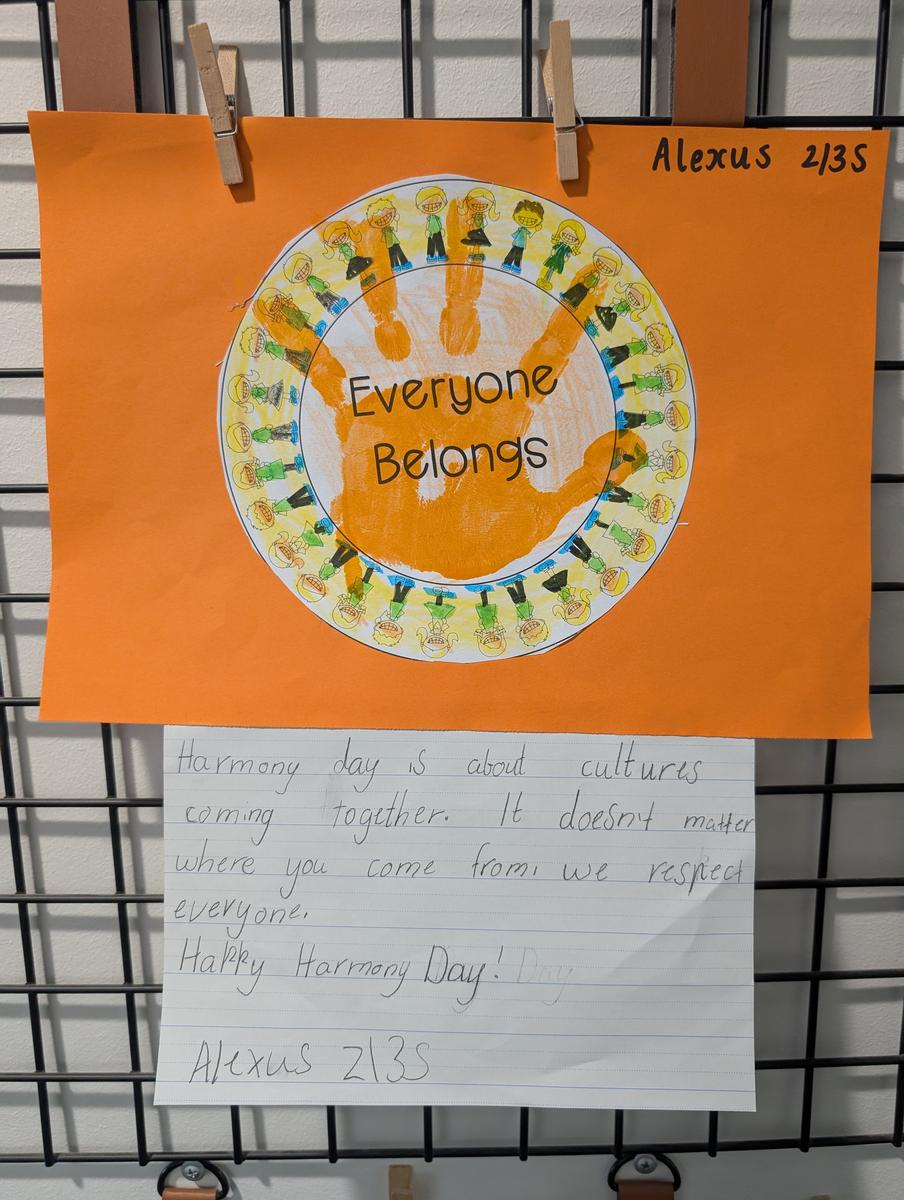 Alexus 2/3S
Everyone
Belongs
Harmony day is about cultures
coming together. It doesn't matter
where you come from, we respect
everyone.
Happy Harmony Day! Day
Alexus 2/3S